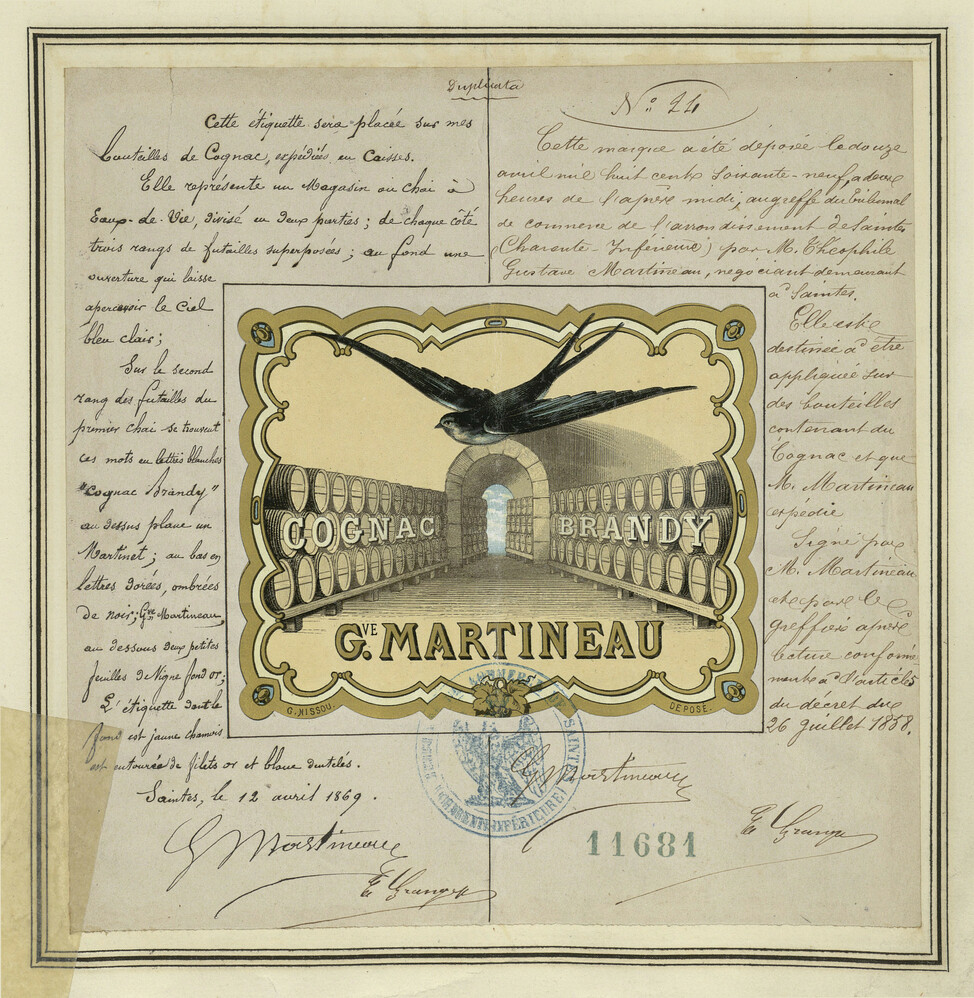 Duplicata
Cette étiquette sera placée sur mes
bouteilles de Cognac, expédiées en Caisses.
Elle représente un Magasin ou Chai à
Eaux-de-Vie, divisé en deux parties; de chaque côté
trois rangs de futailles superposées; au fond une
ouverture qui laisse
apercevoir le Ciel
bleu clair;
Sur le second
rang des futailles du
premier chai se trouvent
ces mots en lettres blanches
"Cognac Brandy"
au dessus plane un
Martinet; au bas en
lettres dorées, ombrées
de noir; Gve Martineau,
au dessous deux petites
feuilles de Vigne fond or;
L'étiquette dont le
fond est jaune chamois
est entourée de filets or et blanc dentelés.
Saintes, le 12 avril 1869.
G Martineau
E Granger
No 24
Cette marque a été déposée le douze
avril mil huit cent soixante-neuf, a deux
heures de l'après midi, au greffe du tribunal
de commerce de l'arrondissement de Saintes
(Charente-Inférieure) par M. Théophile
Gustave Martineau, négociant demeurant
à Saintes.
Elle est
destinée à être
appliquée sur
des bouteilles
contenant du
Cognac et que
M. Martineau
expédie
Signé par
M. Martineau
et par le
greffier après
lecture conformé
ment à l'article 5
du décret du
26 Juillet 1858.
G Martineau
E Granger
11681
COGNAC BRANDY
GVE MARTINEAU
G. NISSOU.
DÉPOSÉ.
DE SAINTES
(CHARENTE-INFÉRIEURE)